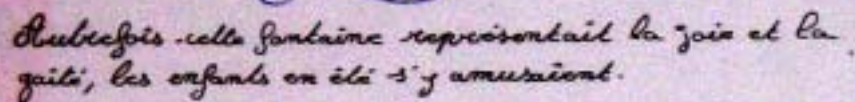 Autrefois cette fontaine représentait la joie et la
gaité, les enfants en été s'y amusaient.